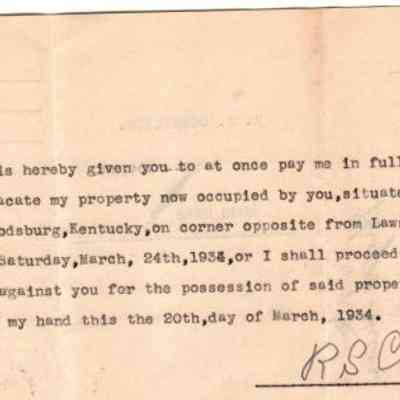 is hereby given you to at once pay me in full
acate my property now occupied by you,situate
odsburg,Kentucky,on corner opposite from Law
Saturday,March, 24th,1934,or I shall proceed
against you for the possession of said prope
my hand this the 20th,day of March, 1934.
R S C